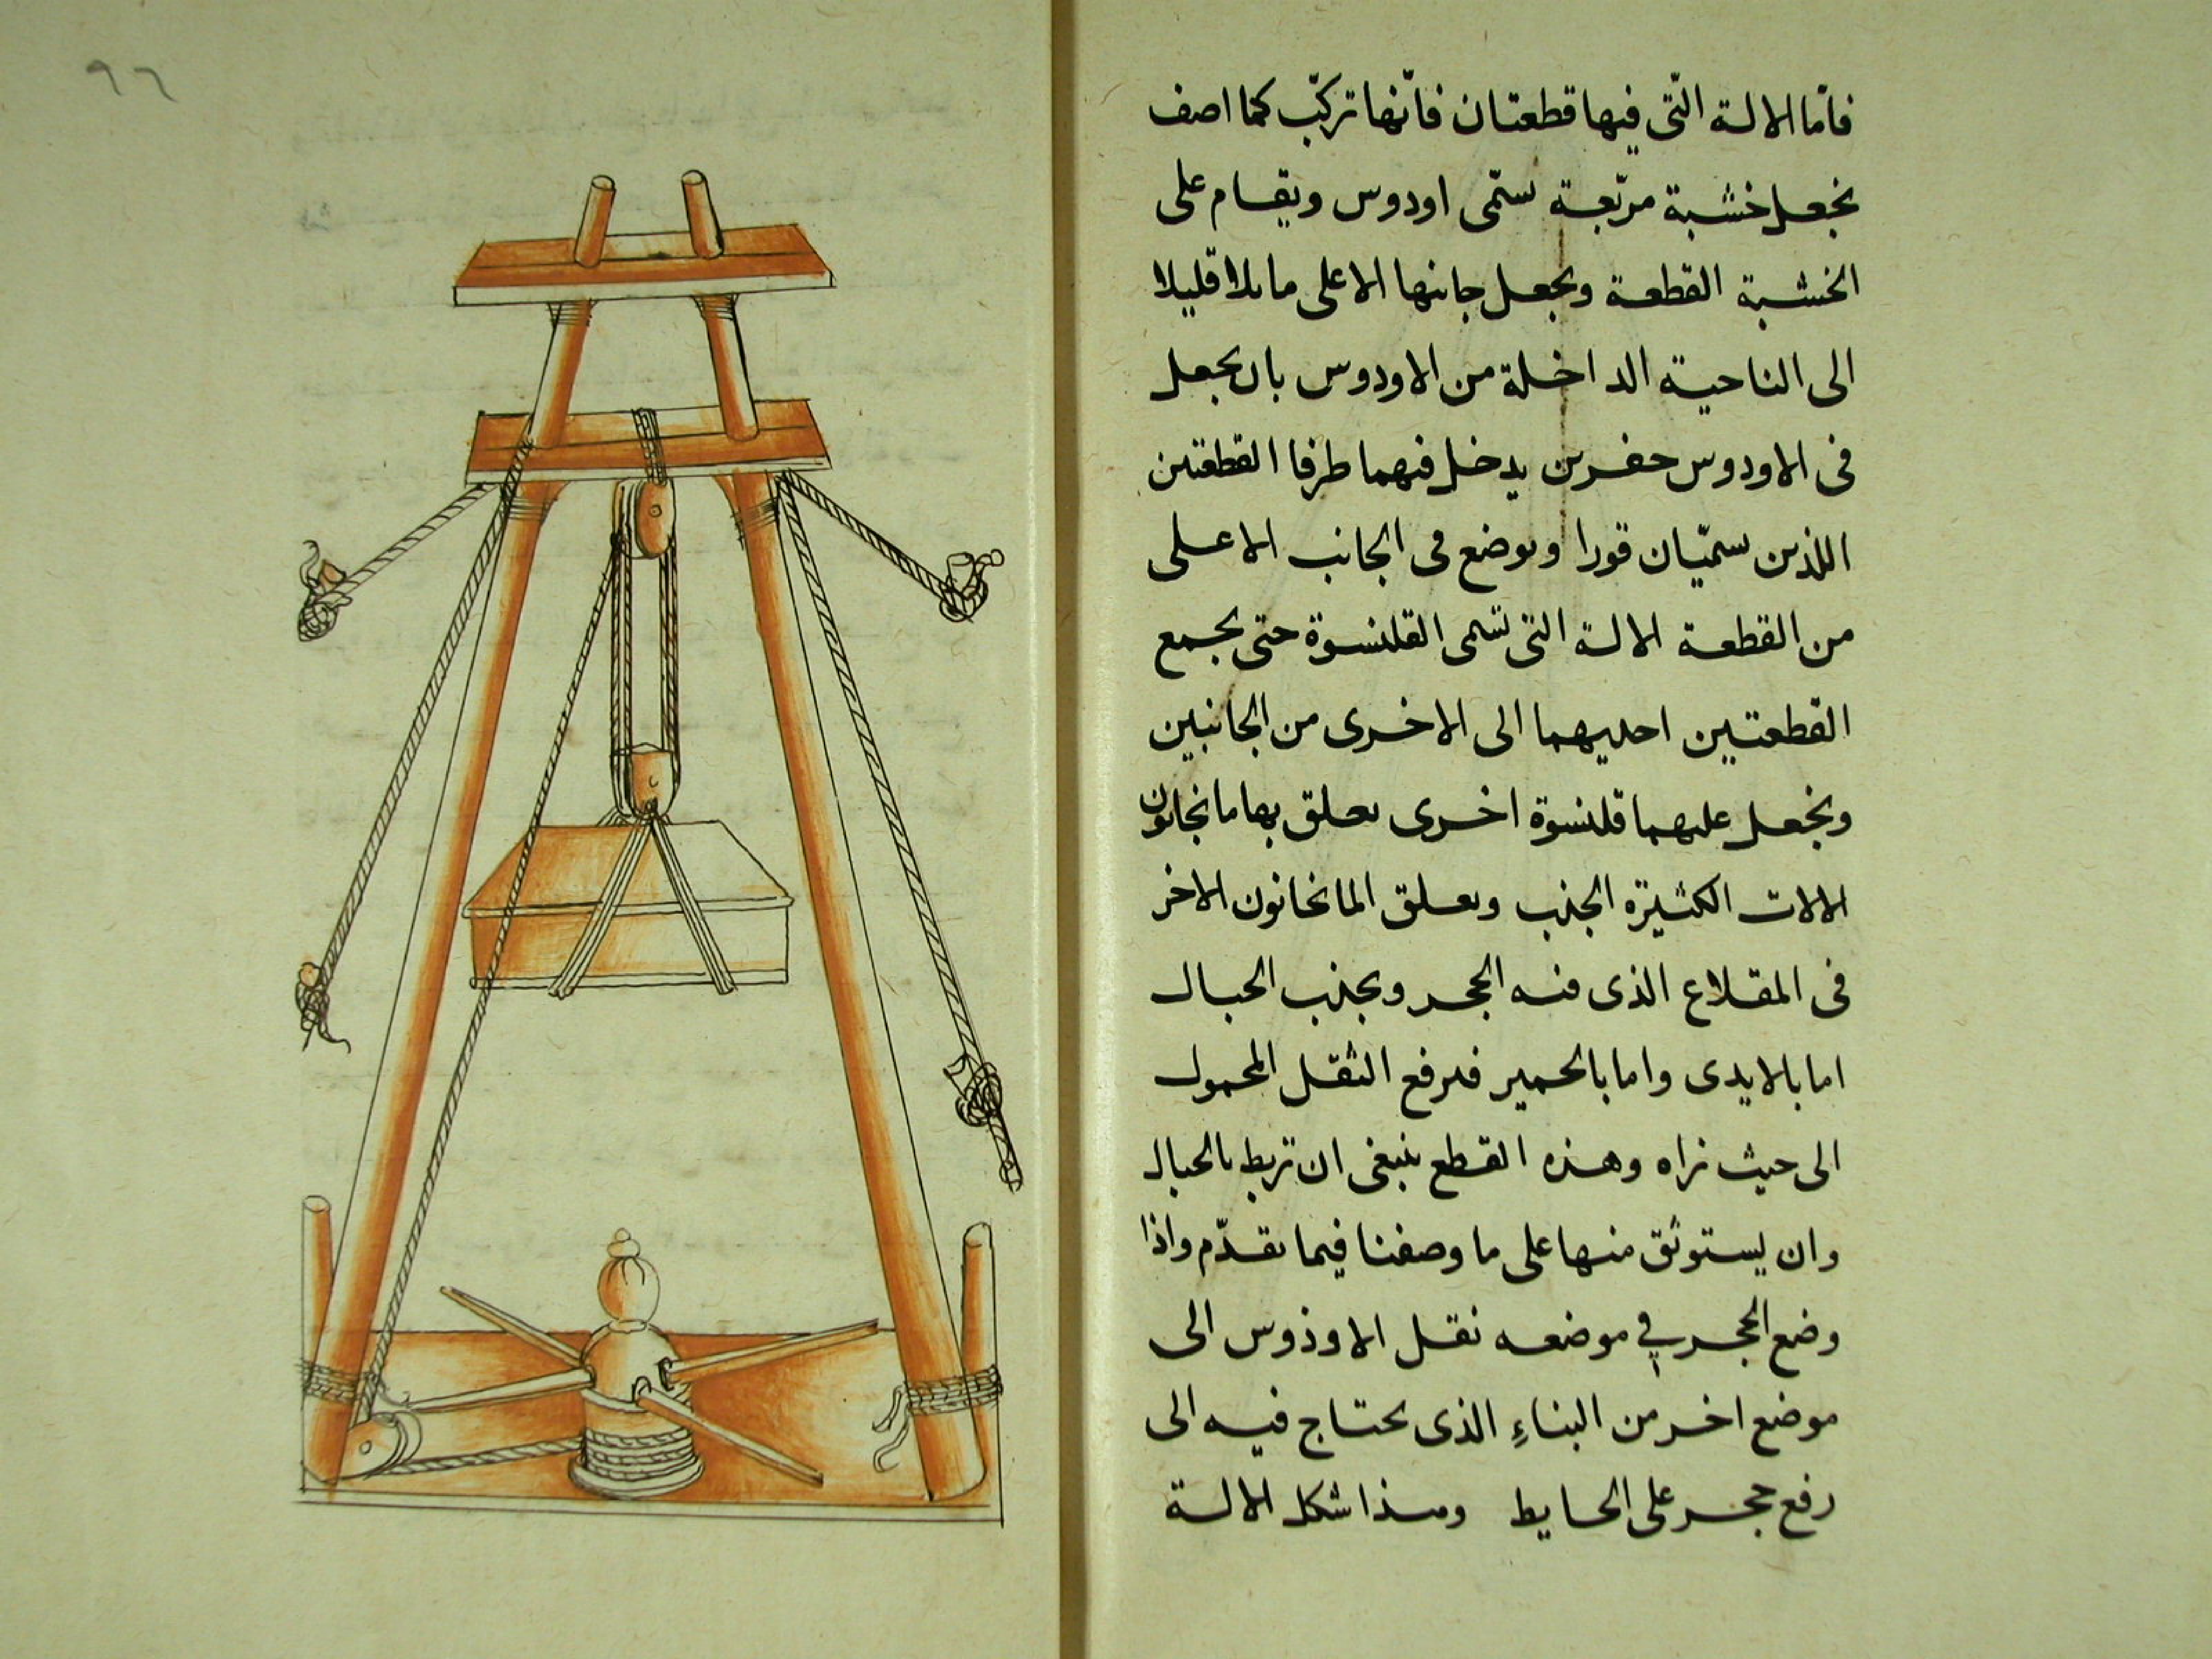 ٩٦
فأمّا الالة التّى فيها قطعتان فانّها تركّب كما اصف
نجعل خشبة مربّعة ستمّى اودوس ويقام على
الخشبة القطعة ونجعل جانبها الاعلى مايلا قليلا
الى الناحية الداخلة من الاودوس بان نجعل
فى الاودوس حفرين يدخل فيهما طرفا القطعتين
اللذين يسمّيان قورا ويوضع فى الجانب الاعلى
من القطعة الالة التى تسمى القلنسوة حتى يجمع
القطعتين احديهما الى الاخرى من الجانبين
ونجعل عليهما قلنسوة اخرى يعلق بها مانجانون
الالات الكثيرة الجذب ويعلق المانخانون الاخر
فى المقلاع الذى فيه الحجر ويجذب الحبال
اما بالايدى واما بالحمير فيرفع الثقل المحمول
الى حيث نراه وهذه القطع ينبغى ان تربط بالحبال
وان يستوثق منها على ما وصفنا فيما تقدّم واذا
وضع الحجر في موضعه نقل الاوذوس الى
موضع اخر من البناءِ الذى يحتاج فيه الى
رفع حجر على الحايط وهذا شكل الالة